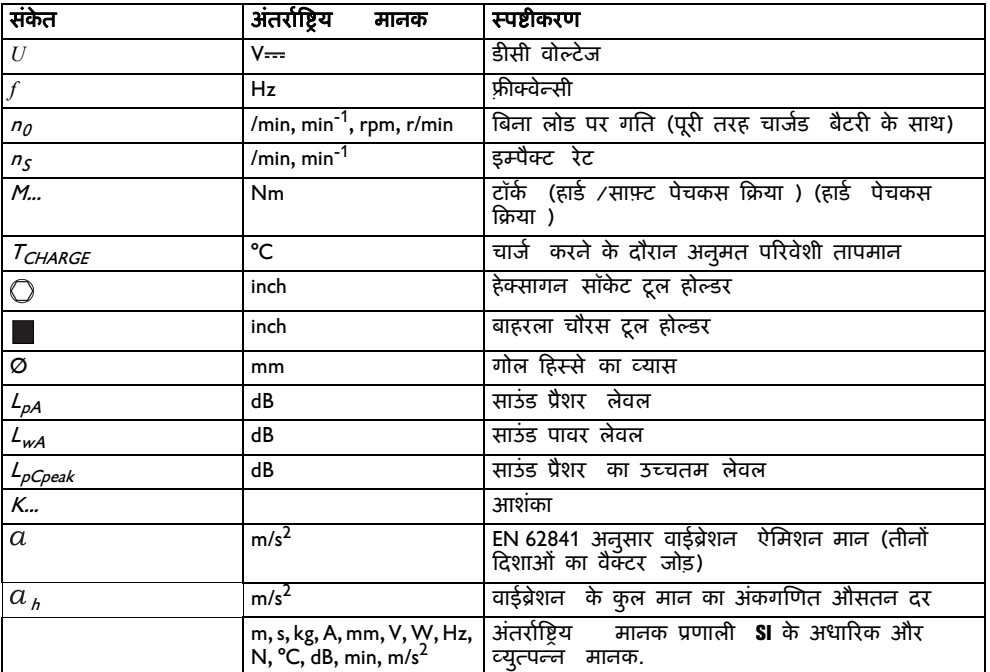 संकेत अंतर्राष्ट्रिय मानक स्पष्टीकरण
U V⎓ डीसी वोल्टेज
f Hz फ़्रीक्वेन्सी
n0 /min, min-1, rpm, r/min बिना लोड पर गति (पूरी तरह चार्जड बैटरी के साथ)
nS /min, min-1 इम्पैक्ट रेट
M... Nm टॉर्क (हार्ड /साफ़्ट पेचकस क्रिया ) (हार्ड पेचकस
क्रिया )
TCHARGE °C चार्ज करने के दौरान अनुमत परिवेशी तापमान
inch हेक्सागन सॉकेट टूल होल्डर
inch बाहरला चौरस टूल होल्डर
Ø mm गोल हिस्से का व्यास
LpA dB साउंड प्रैशर लेवल
LwA dB साउंड पावर लेवल
LpCpeak dB साउंड प्रैशर का उच्चतम लेवल
K... आशंका
a m/s2 EN 62841 अनुसार वाईब्रेशन ऐमिशन मान (तीनों
दिशाओं का वैक्टर जोड़)
a h m/s2 वाईब्रेशन के कुल मान का अंकगणित औसतन दर
m, s, kg, A, mm, V, W, Hz, अंतर्राष्ट्रिय मानक प्रणाली SI के अधारिक और
N, °C, dB, min, m/s2 व्युत्पन्न मानक.